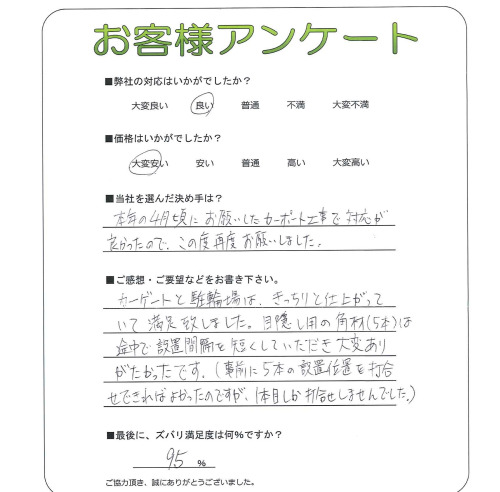 お客様アンケート
■弊社の対応はいかがでしたか?
大変良い 良い 普通 不満 大変不満
■価格はいかがでしたか?
大変安い 安い 普通 高い 大変高い
■当社を選んだ決め手は?
本年の4月頃にお願いしたカーポート工事で対応が
良かったので、この度再度お願いしました。
■ご感想・ご要望などをお書き下さい。
カーゲートと駐輪場は、きっちりと仕上がって
いて満足致しました。目隠し用の角材(5本)は
途中で設置間隔を短くしていただき大変あり
がたかったです。(事前に5本の設置位置を打合
せできればよかったのですが、1本目しか打合せしませんでした。)
■最後に、ズバリ満足度は何%ですか?
95 %
ご協力頂き、誠にありがとうございました。